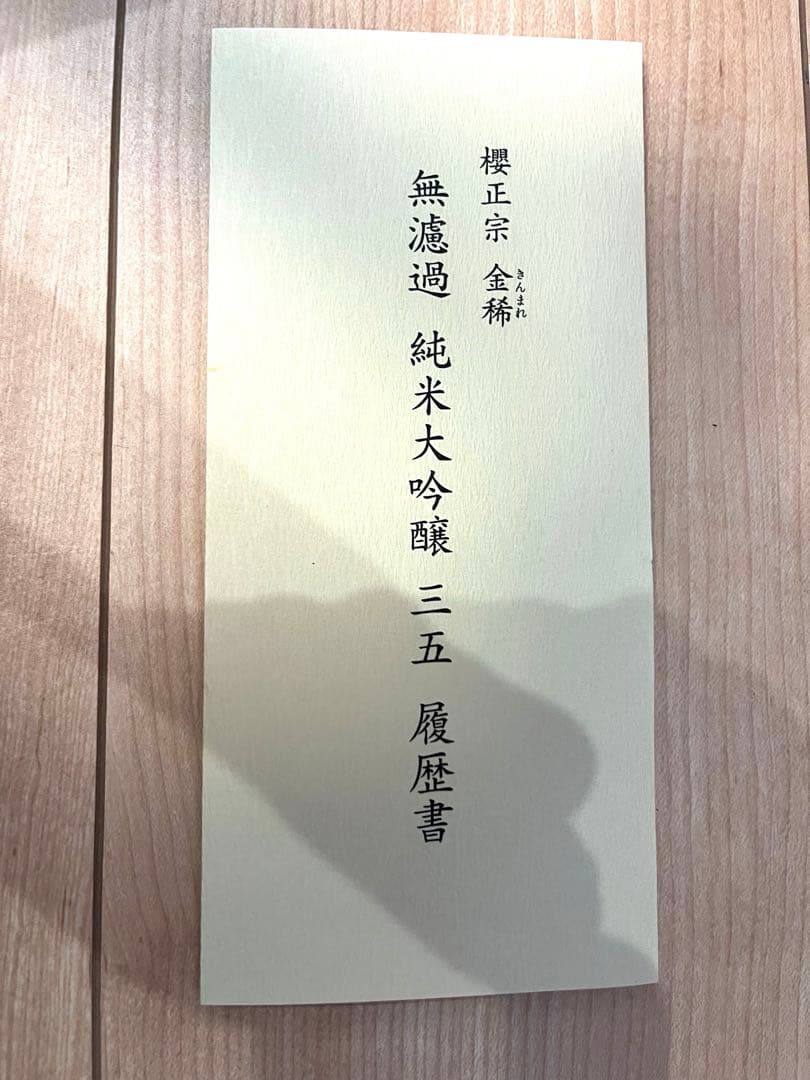 櫻正宗 金稀
きんまれ
無濾過 純米大吟醸 三五 履歴書